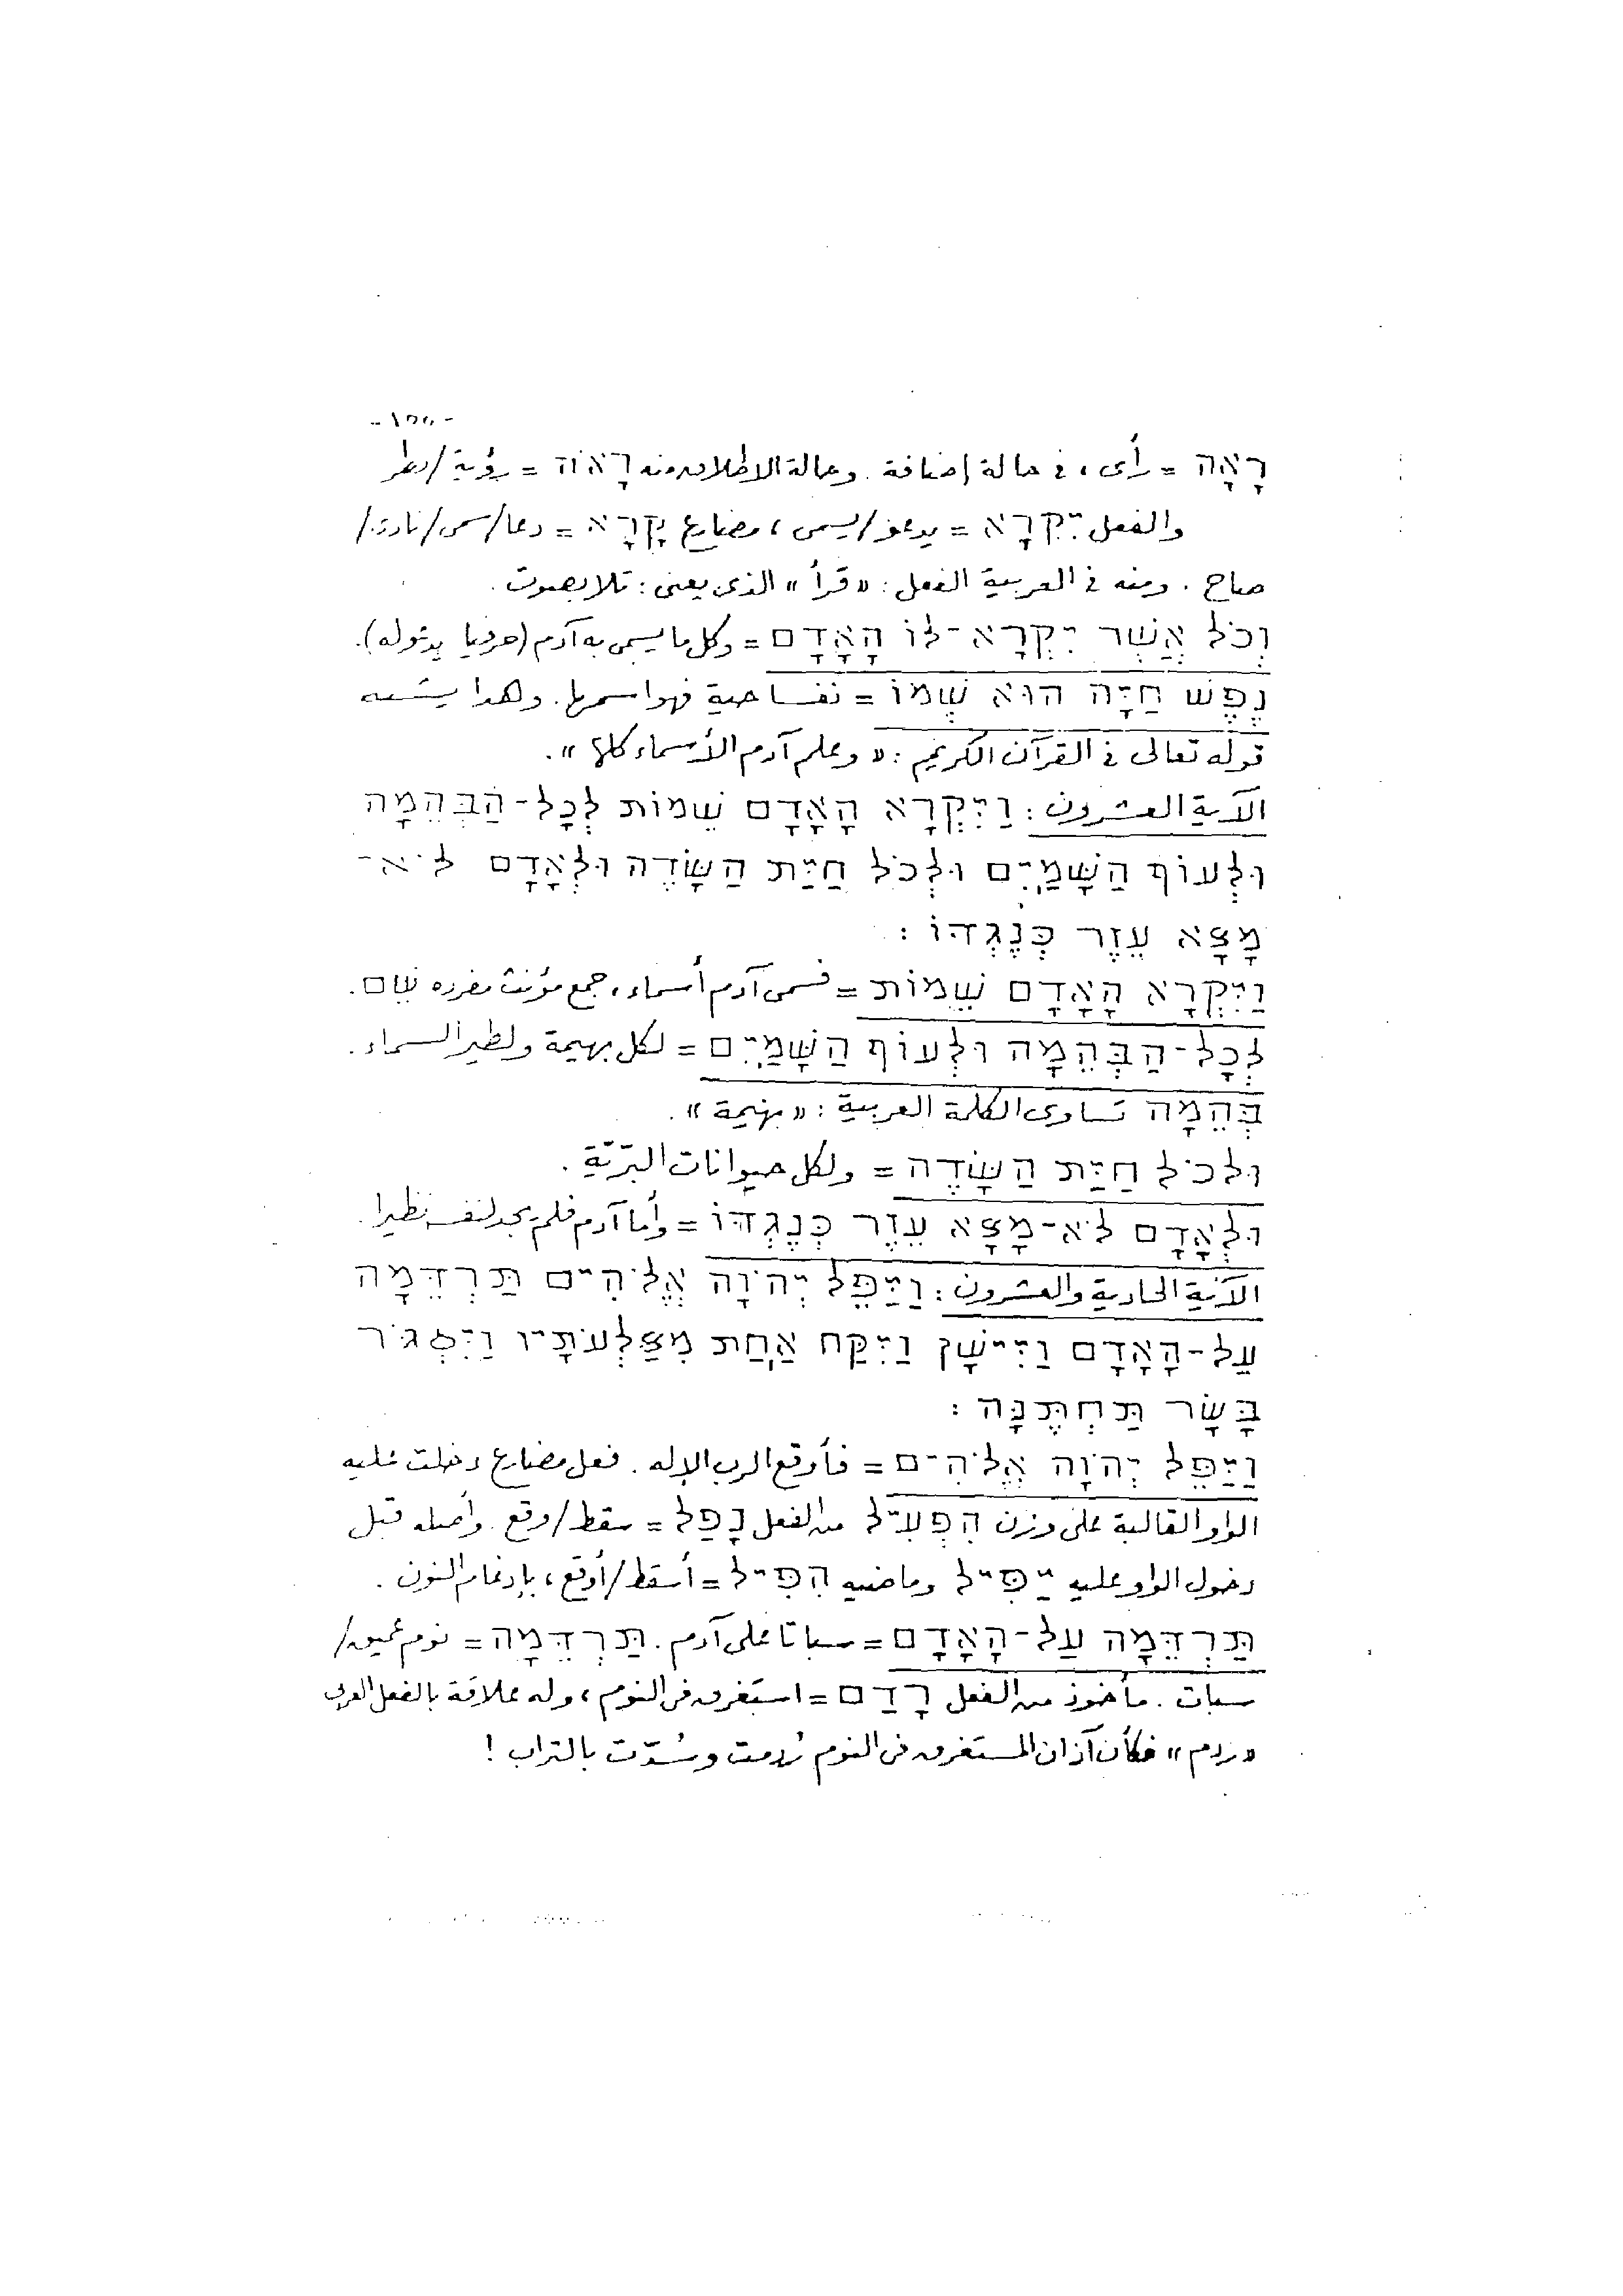 -١٥٥-
רָאָה = رأى ، في حالة إضافة . وحالة الاطلاق منه רָאֹה = رؤية / نظر
والفعل יִקְרָא = يدعو/يسمى ، مضارع קָרָא = دعا/سمى/نادى/
صاح . ومنه في العربية الفعل : « قرأ » الذى يعنى : تلا بصوت .
וְכֹל אֲשֶׁר יִקְרָא־לוֹ הָאָדָם = وكل ما يسمى به آدم (حرفيا يدعو له) .
נֶפֶשׁ חַיָּה הוּא שְׁמוֹ = نفسا حية فهو اسمها . وهذا يشبه
قوله تعالى في القرآن الكريم : « وعلم آدم الأسماء كلها » .
الآية العشرون : וַיִּקְרָא הָאָדָם שֵׁמוֹת לְכָל־הַבְּהֵמָה
וּלְעוֹף הַשָּׁמַיִם וּלְכֹל חַיַּת הַשָּׂדֶה וּלְאָדָם לֹא־
מָצָא עֵזֶר כְּנֶגְדּוֹ :
וַיִּקְרָא הָאָדָם שֵׁמוֹת = فسمى آدم أسماء ، جمع مؤنث مفرده שֵׁם .
לְכָל־הַבְּהֵמָה וּלְעוֹף הַשָּׁמַיִם = لكل بهيمة ولطير السماء .
בְּהֵמָה تساوى الكلمة العربية : « بهيمة » .
וּלכֹל חַיַּת הַשָּׂדֶה = ولكل حيوانات البرّيّة .
וּלְאָדָם לֹא־מָצָא עֵזֶר כְּנֶגְדּוֹ = وأما آدم فلم يجد لنفسه نظيرا .
الآية الحادية والعشرون : וַיַּפֵּל יְהֹוָה אֱלֹהִים תַּרְדֵּמָה
עַל־הָאָדָם וַיִּישָׁן וַיִּקַּח אַחַת מִצַּלְעֹתָיו וַיִּסְגֹּר
בָּשָׂר תַּחְתֶּנָּה :
וַיַּפֵּל יְהֹוָה אֱלֹהִים = فأوقع الرب الإله . فعل مضارع دخلت عليه
الواو القالبة على وزن הִפְעִיל من الفعل נָפַל = سقط/وقع . وأصله قبل
دخول الواو عليه יַפִּיל وماضيه הִפִּיל = أسقط/أوقع ، بإدغام النون .
תַּרְדֵּמָה עַל־הָאָדָם = سباتا على آدم . תַּרְדֵּמָה = نوم عميق/
سبات . مأخوذ من الفعل רָדַם = استغرق فى النوم ، وله علاقة بالفعل العربى
« ردم » فكأن آذان المستغرق فى النوم رُدمت وسُدّت بالتراب !